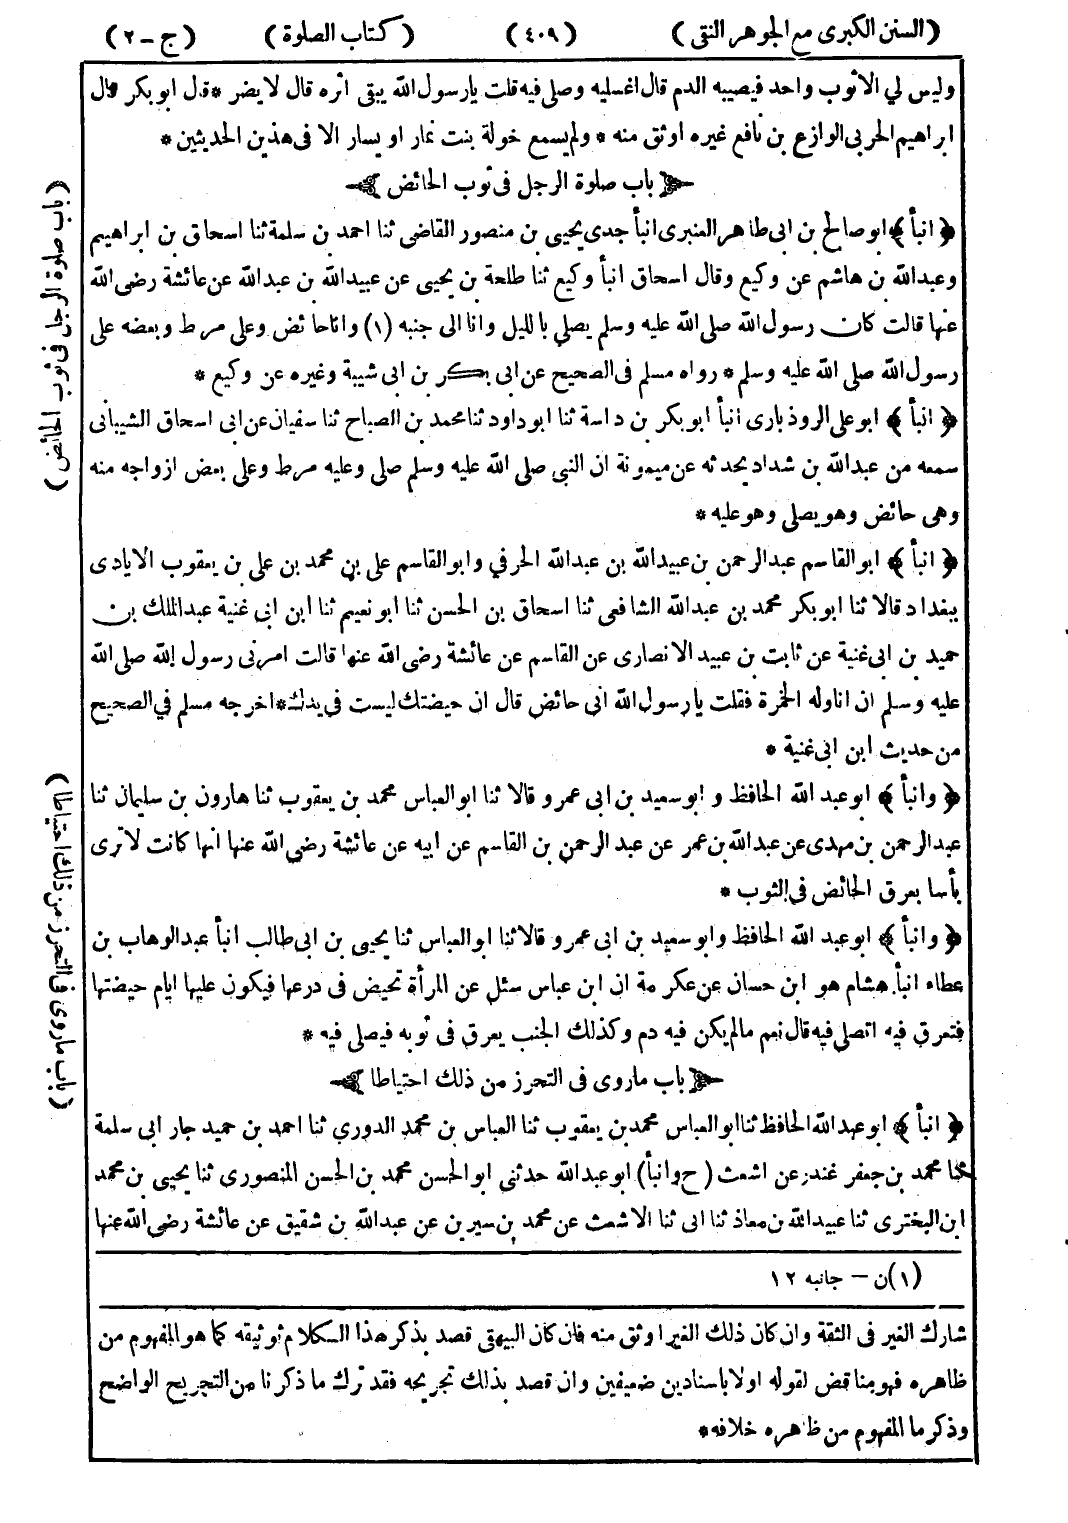 (السنن الكبرى مع الجوهر النقى) (٤٠٩) (كتاب الصلوة) (ج-٢)
وليس لي الا ثوب واحد فيصيبه الدم قال اغسليه وصلى فيه قلت يا رسول الله يبقى اثره قال لا يضر * قال ابو بكر قال
ابراهيم الحربى الوازع بن نافع غيره اوثق منه * ولم يسمع خولة بنت نمار او يسار الا فى هذين الحديثين *
باب صلوة الرجل فى ثوب الحائض
﴿ انبأ ﴾ ابو صالح بن ابى طاهر العنبرى انبأ جدى يحيى بن منصور القاضى ثنا احمد بن سلمة ثنا اسحاق بن ابراهيم
وعبدالله بن هاشم عن وكيع وقال اسحاق انبأ وكيع ثنا طلحة بن يحيى عن عبيدالله بن عبدالله عن عائشة رضى الله
عنها قالت كان رسول الله صلى الله عليه وسلم يصلى بالليل وانا الى جنبه (١) وانا حائض وعلى مرط وبعضه على
رسول الله صلى الله عليه وسلم * رواه مسلم فى الصحيح عن ابى بكر بن ابى شيبة وغيره عن وكيع *
﴿ انبأ ﴾ ابو على الروذبارى انبأ ابو بكر بن داسة ثنا ابو داود ثنا محمد بن الصباح ثنا سفيان عن ابى اسحاق الشيبانى
سمعه من عبدالله بن شداد يحدثه عن ميمونة ان النبى صلى الله عليه وسلم صلى وعليه مرط وعلى بعض ازواجه منه
وهى حائض وهو يصلى وهو عليه *
﴿ انبأ ﴾ ابو القاسم عبدالرحمن بن عبيدالله بن عبدالله الحرفي وابو القاسم على بن محمد بن على بن يعقوب الايادى
ببغداد قالا ثنا ابو بكر محمد بن عبدالله الشافعى ثنا اسحاق بن الحسن ثنا ابو نعيم ثنا ابن ابى غنية عبدالملك بن
حميد بن ابى غنية عن ثابت بن عبيد الانصارى عن القاسم عن عائشة رضى الله عنها قالت امرنى رسول الله صلى الله
عليه وسلم ان اناوله الخمرة فقلت يا رسول الله انى حائض قال ان حيضتك ليست فى يدك * اخرجه مسلم في الصحيح
من حديث ابن ابى غنية *
﴿ وانبأ ﴾ ابو عبد الله الحافظ و ابو سعيد بن ابى عمرو قالا ثنا ابو العباس محمد بن يعقوب ثنا هارون بن سليمان ثنا
عبدالرحمن بن مهدى عن عبدالله بن عمر عن عبد الرحمن بن القاسم عن ابيه عن عائشة رضى الله عنها انها كانت لا ترى
بأسا بعرق الحائض فى الثوب *
﴿ وانبأ ﴾ ابو عبد الله الحافظ وابو سعيد بن ابى عمرو قالا ثنا ابو العباس ثنا يحيى بن ابى طالب انبأ عبدالوهاب بن
عطاء انبأ هشام هو ابن حسان عن عكرمة ان ابن عباس سئل عن المرأة تحيض فى درعها فيكون عليها ايام حيضتها
فتعرق فيه اتصلى فيه قال نعم مالم يكن فيه دم وكذلك الجنب يعرق فى ثوبه فيصلى فيه *
باب ما روى فى التحرز من ذلك احتياطا
﴿ انبأ ﴾ ابو عبدالله الحافظ ثنا ابو العباس محمد بن يعقوب ثنا العباس بن محمد الدوري ثنا احمد بن حميد جار ابى سلمة
ثنا محمد بن جعفر غندر عن اشعث (ح وانبأ) ابو عبدالله حدثنى ابو الحسن محمد بن الحسن المنصورى ثنا يحيى بن محمد
ابن البخترى ثنا عبيدالله بن معاذ ثنا ابى ثنا الاشعث عن محمد بن سيرين عن عبدالله بن شقيق عن عائشة رضى الله عنها
(١) ن – جانبه ١٢
شارك الغير فى الثقة وان كان ذلك الغير اوثق منه فان كان البيهقى قصد بذكر هذا الكلام توثيقه كما هو المفهوم من
ظاهره فهو مناقض لقوله اولا باسنادين ضعيفين وان قصد بذلك تجريحه فقد ترك ما ذكرنا من التجريح الواضح
وذكر ما المفهوم من ظاهره خلافه *
(باب صلوة الرجل فى ثوب الحائض)
(باب ما روى فى التحرز من ذلك احتياطا)